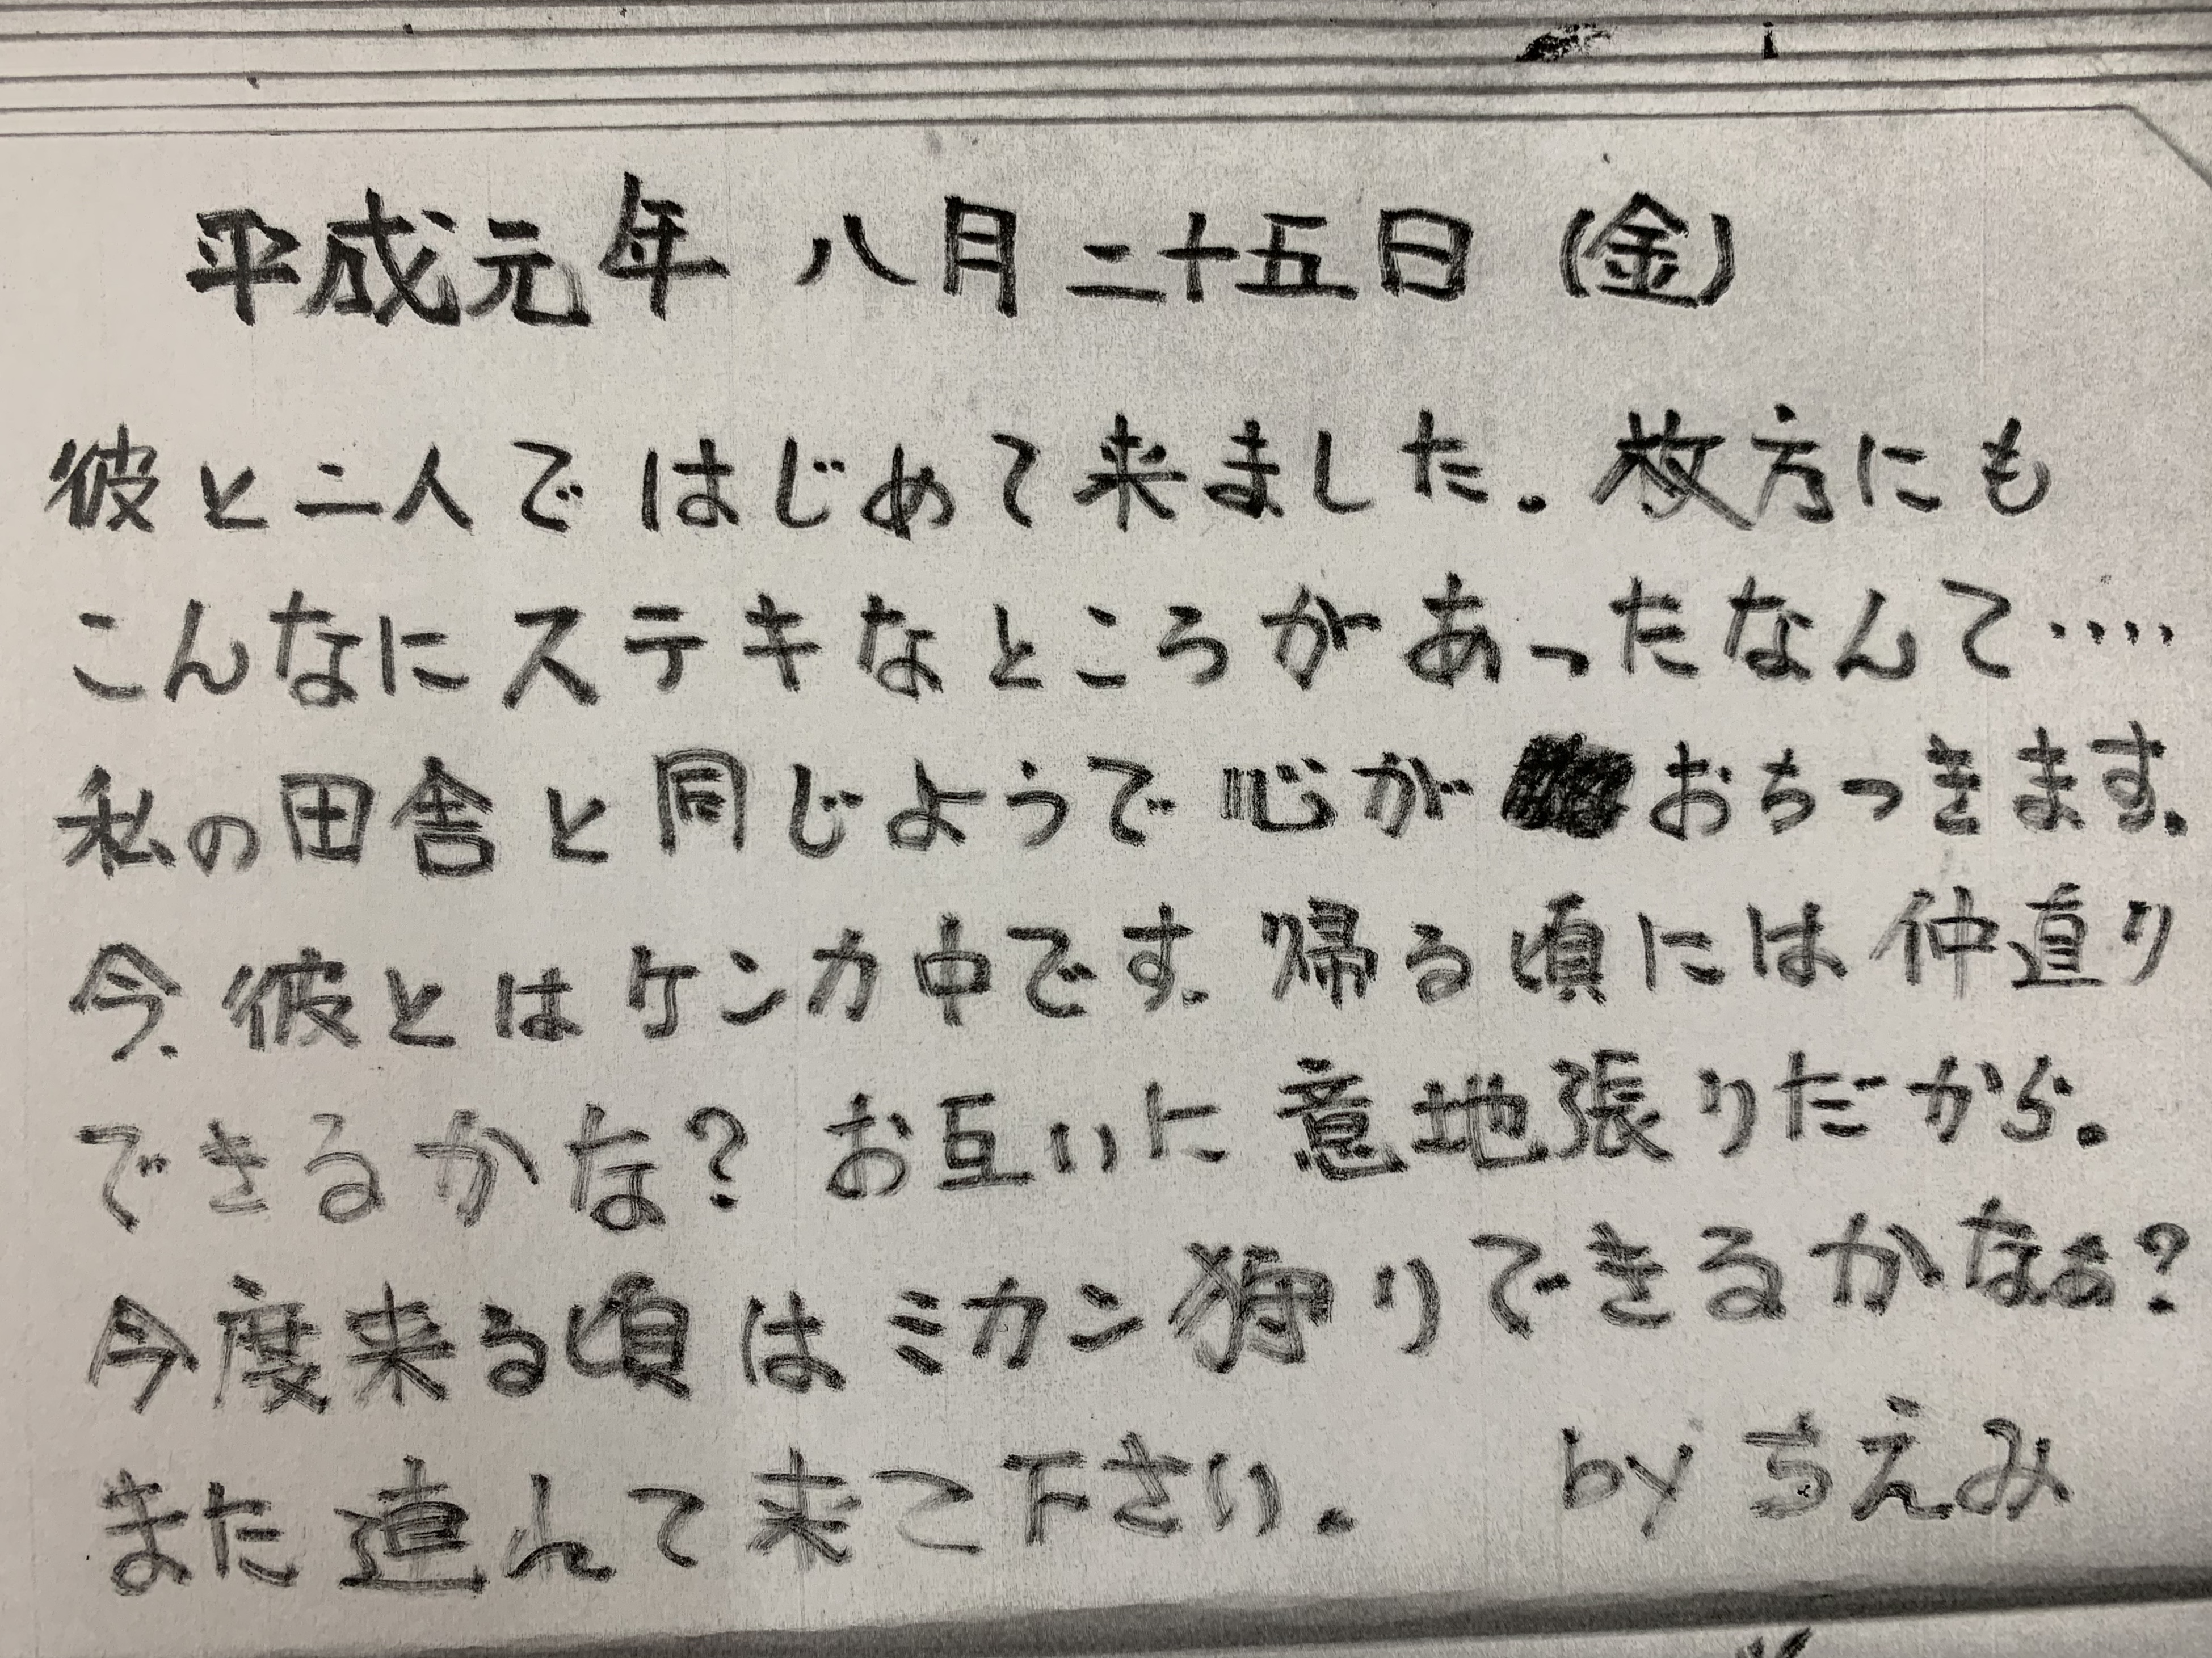 平成元年 八月二十五日 (金)
彼と二人ではじめて来ました。枚方にも
こんなにステキなところがあったなんて‥‥
私の田舎と同じようで心がおちつきます。
今、彼とはケンカ中です。帰る頃には仲直り
できるかな?お互いに意地張りだから。
今度来る頃はミカン狩りできるかなぁ?
また連れて来て下さい。 by ちえみ